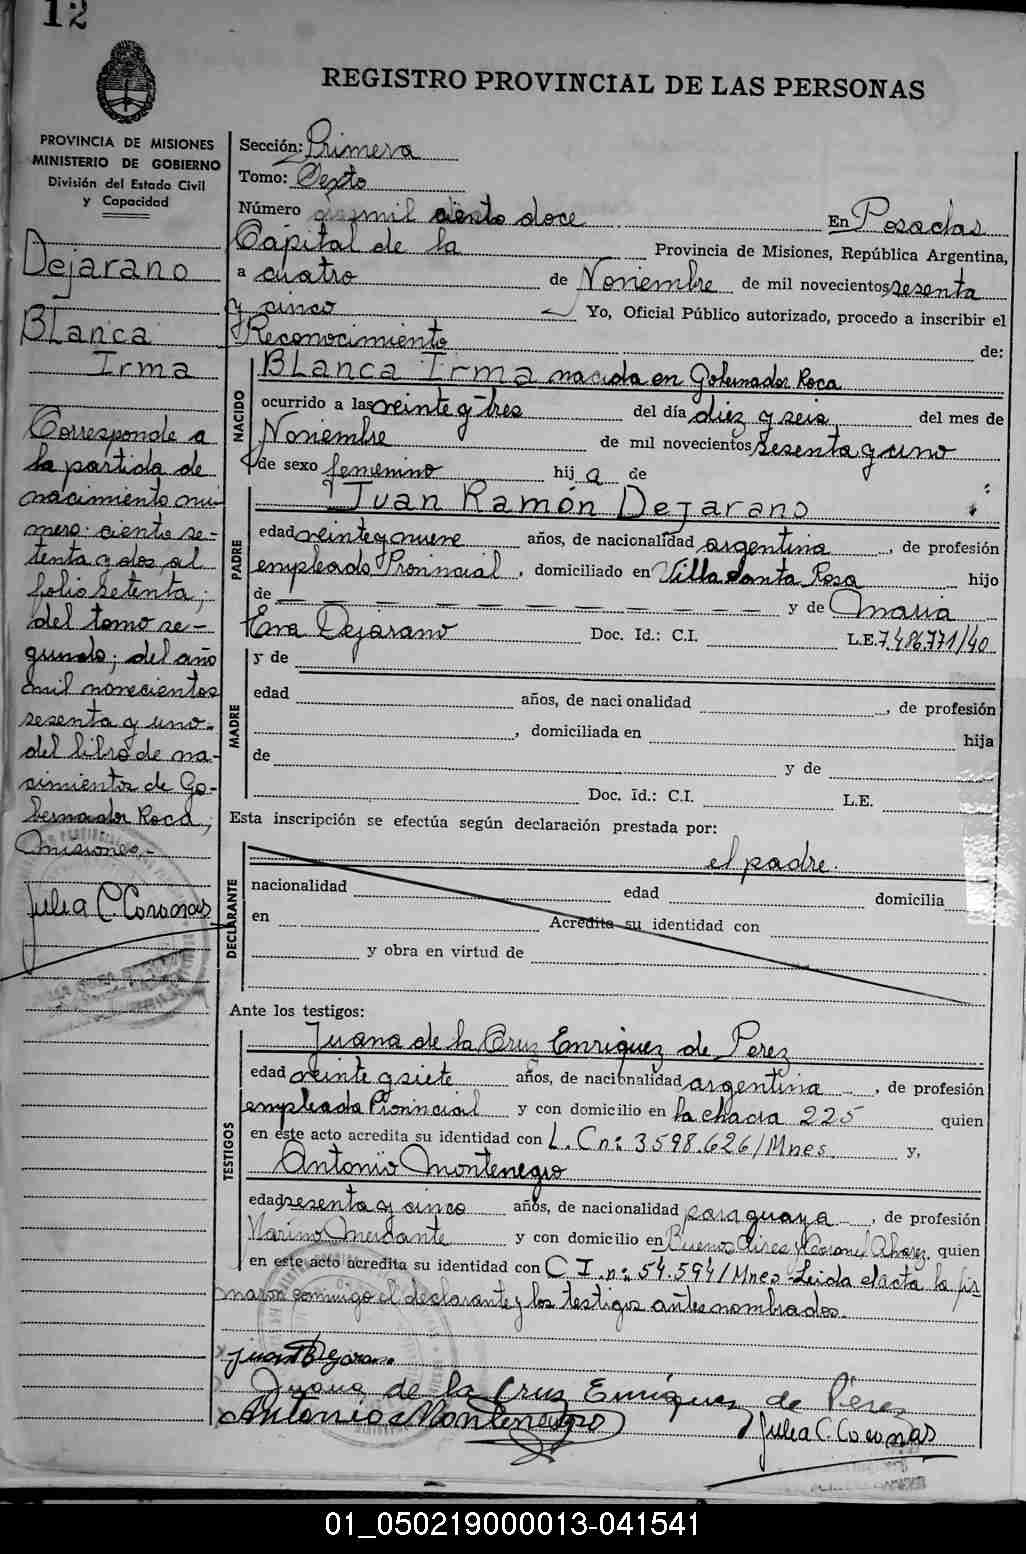 12
REGISTRO PROVINCIAL DE LAS PERSONAS
PROVINCIA DE MISIONES
MINISTERIO DE GOBIERNO
División del Estado Civil
y Capacidad
Dejarano
Blanca
Irma
Corresponde a
la partida de
nacimiento nú-
mero: ciento se-
tenta y dos, al
folio setenta;
del tomo se-
gundo; del año
mil novecientos
sesenta y uno.
del libro de na-
cimientos de Go-
bernador Roca,
Misiones.-
Julia C. Coronas
Sección: Primera
Tomo: Sexto
Número mil ciento doce En Posadas
Capital de la Provincia de Misiones, República Argentina,
a cuatro de Noviembre de mil novecientos sesenta
y cinco Yo, Oficial Público autorizado, procedo a inscribir el
Reconocimiento de:
NACIDO
Blanca Irma nacida en Gobernador Roca
ocurrido a las veinte y tres del día diez y seis del mes de
Noviembre de mil novecientos sesenta y uno
de sexo femenino hij a de
PADRE
Juan Ramón Dejarano
edad veinte y nueve años, de nacionalidad argentina, de profesión
empleado Provincial, domiciliado en Villa Santa Rosa hijo
de y de María
Eva Dejarano Doc. Id.: C.I. L.E. 7.486.771/40
MADRE
y de
edad años, de nacionalidad , de profesión
, domiciliada en hija
de y de
Doc. Id.: C.I. L.E.
Esta inscripción se efectúa según declaración prestada por:
DECLARANTE
el padre.
nacionalidad edad domicilia
en Acredita su identidad con
y obra en virtud de
Ante los testigos:
TESTIGOS
Juana de la Cruz Enriquez de Perez
edad veinte y siete años, de nacionalidad argentina, de profesión
empleada Provincial y con domicilio en la chacra 225 quien
en este acto acredita su identidad con L. Cn: 3598.626/Mnes. y,
Antonio Montenegro
edad sesenta y cinco años, de nacionalidad paraguaya, de profesión
Marino Mercante y con domicilio en Buenos Aires y Coronel Alvarez. quien
en este acto acredita su identidad con C I. n: 54.594/Mnes Leida el acta la fir-
maron conmigo el declarante y los testigos antes nombrados.
Juan R Dejarano
Juana de la Cruz Enriquez de Pérez
Antonio Montenegro
Julia C. Coronas
01_050219000013-041541